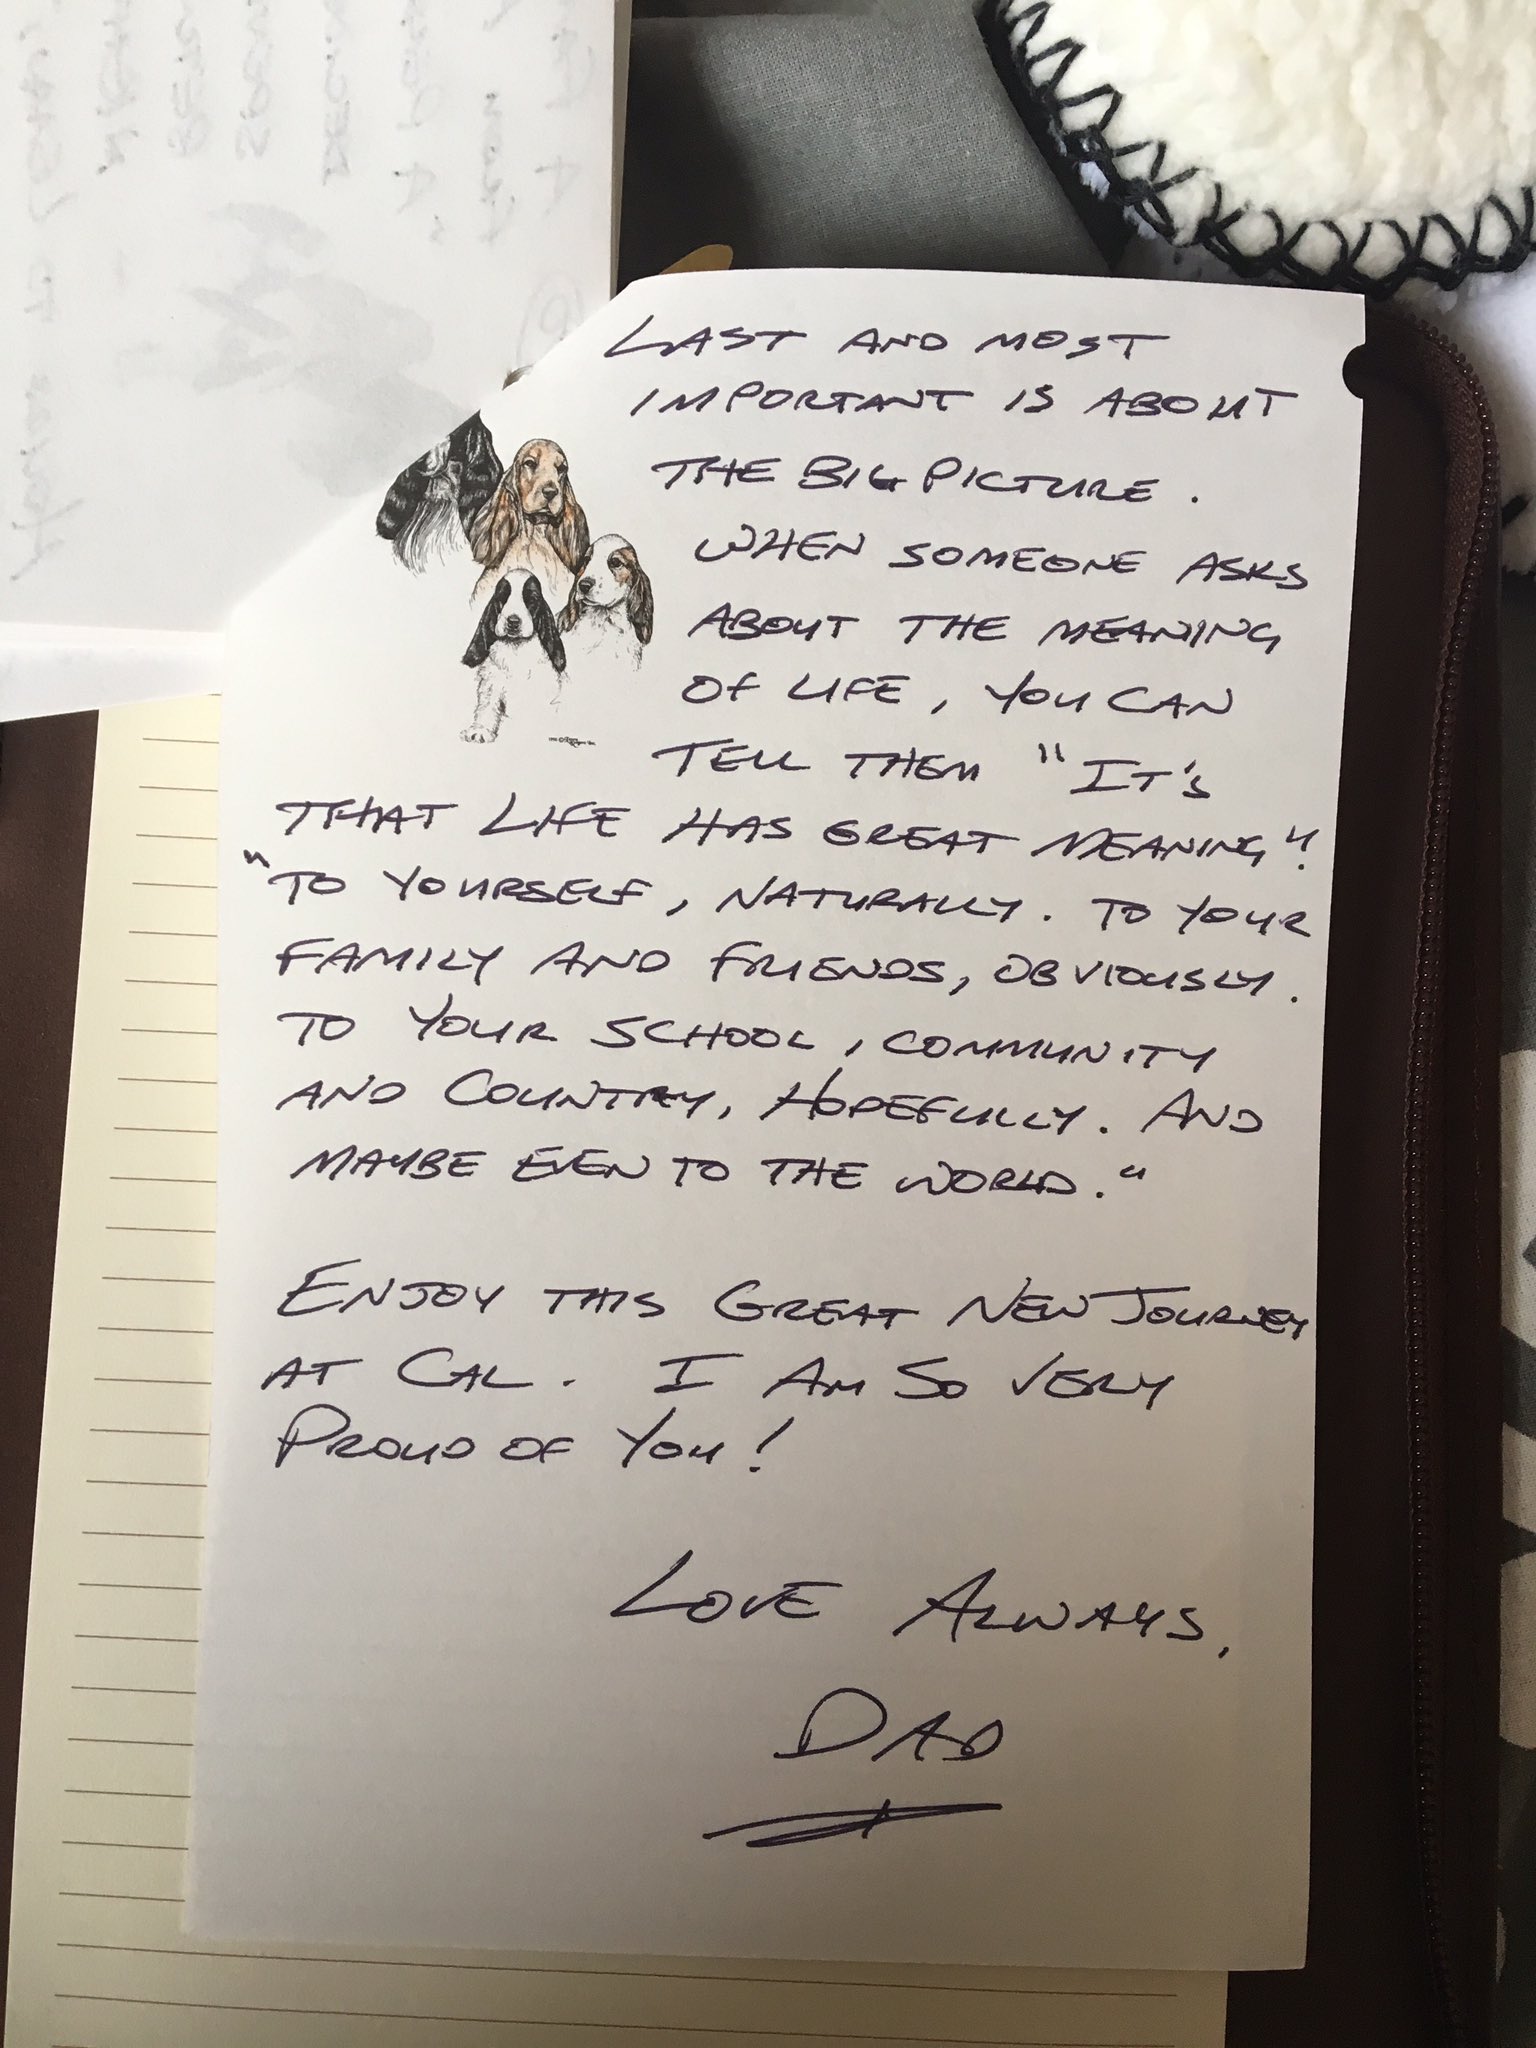 LAST AND MOST
IMPORTANT IS ABOUT
THE BIG PICTURE.
WHEN SOMEONE ASKS
ABOUT THE MEANING
OF LIFE, YOU CAN
TELL THEM "IT'S
THAT LIFE HAS GREAT MEANING".
"TO YOURSELF, NATURALLY. TO YOUR
FAMILY AND FRIENDS, OBVIOUSLY.
TO YOUR SCHOOL, COMMUNITY
AND COUNTRY, HOPEFULLY. AND
MAYBE EVEN TO THE WORLD."
ENJOY THIS GREAT NEW JOURNEY
AT CAL. I AM SO VERY
PROUD OF YOU!
LOVE ALWAYS,
DAD